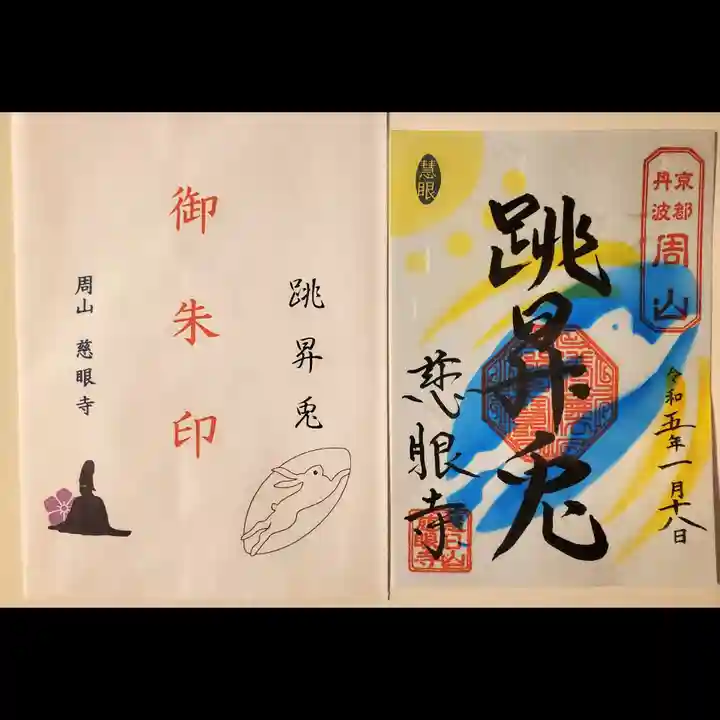 跳昇兎
御朱印
周山 慈眼寺
京都
丹波
周山
慧眼
跳昇兎
令和五年一月十八日
慈眼寺